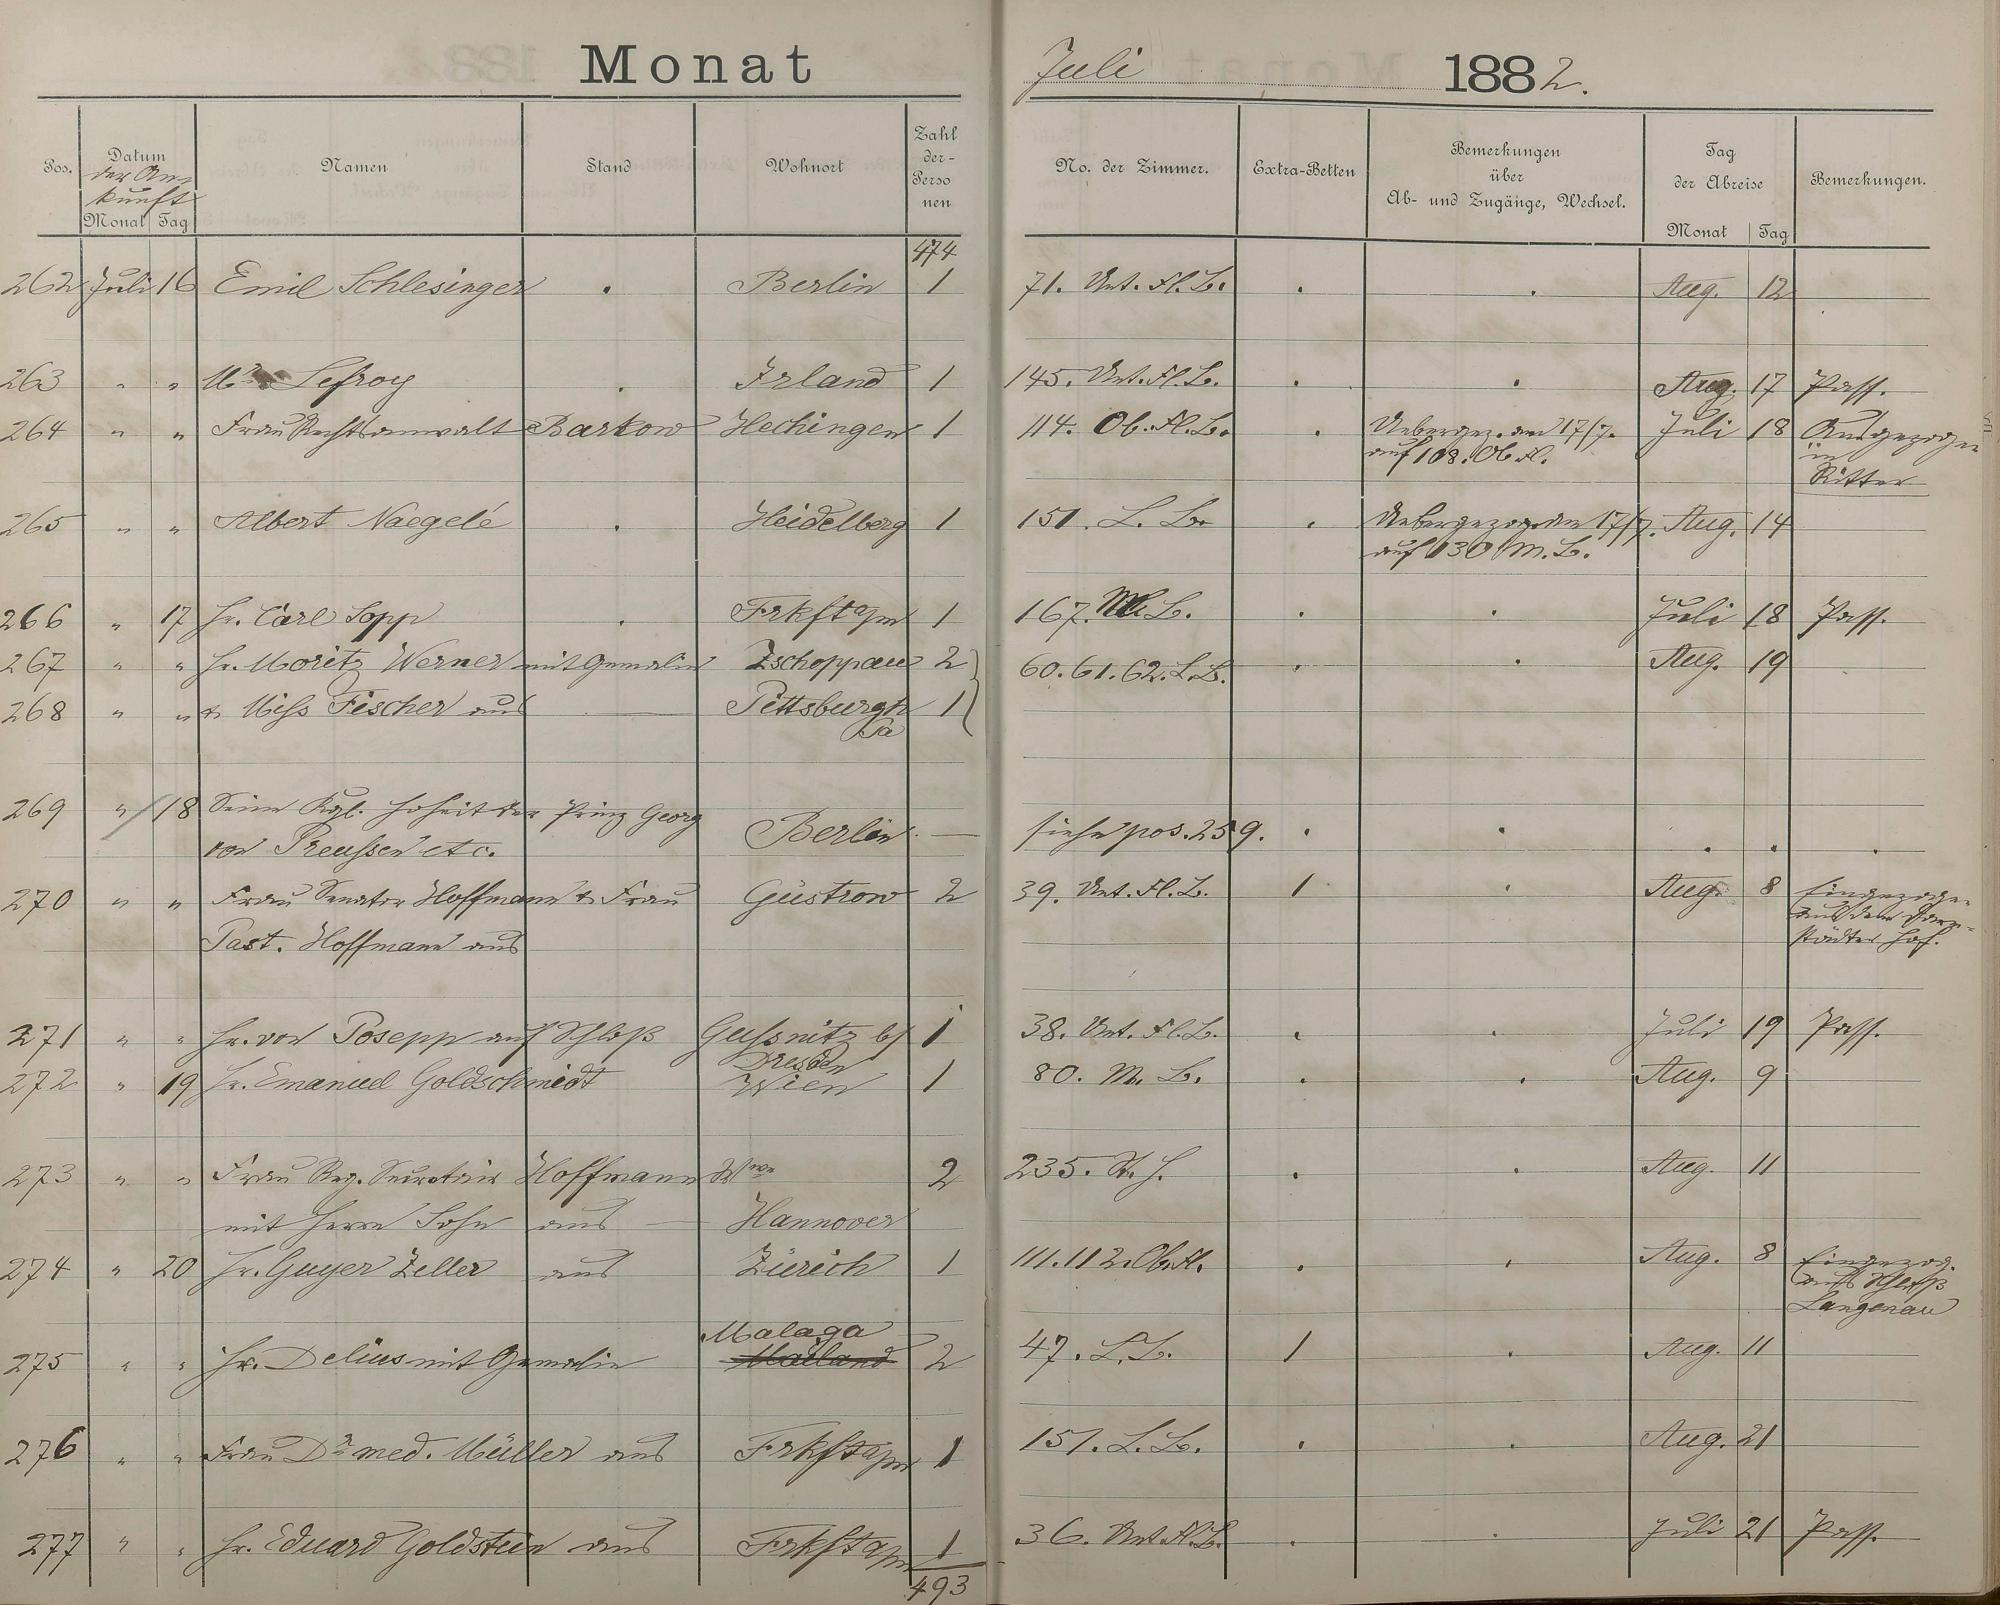 Monat Juli 1882.
Pos. Datum der Ankunft Monat Tag Namen Stand Wohnort Zahl der Personen No. der Zimmer. Extra-Betten Bemerkungen über Ab- und Zugänge, Wechsel. Tag der Abreise Monat Tag Bemerkungen.
474
262 Juli 16 Emil Schlesinger . Berlin 1 71. Unt. Fl. L. . . Aug. 12
263 " " Lefroy . Irland 1 145. Unt. Fl. L. . . Aug. 17 Pass.
264 " " Frau Rechtsanwalt Barkow Hechingen 1 114. Ob. Fl. L. . Uebergez. am 17/7. Juli 18 Ausgezogen
auf 108. Ob. Fl. in
Ritter
265 " " Albert Naegelé . Heidelberg 1 151. L. L. . Uebergezogen am 17/7. Aug. 14
auf 130 M. L.
266 " 17 Hr. Carl Sopp . Frkft a/m 1 167. L. . . Juli 18 Pass.
267 " " Hr. Moritz Werner mit Gemalin Zschoppau 2 60. 61. 62. L. L. . . Aug. 19
268 " " & Miss Fischer aus Pittsburgh 1
Pa
269 " 18 Seine Kgl. Hoheit der Prinz Georg
von Preussen etc. Berlin — siehe pos. 259. . . . . .
270 " " Frau Senator Hoffmann & Frau Güstrow 2 39. Unt. Fl. L. 1 . Aug. 8 Eingezogen
aus dem Darm-
Past. Hoffmann aus städter Hof.
271 " " Hr. von Posepp auf Schloß Gussnitz b/ 1 38. Unt. Fl. L. . . Juli 19 Pass.
Dresden
272 " 19 Hr. Emanuel Goldschmidt Wien 1 80. M. L. . . Aug. 9
273 " " Frau Reg. Secretair Hoffmann Wwe 2 235. St. H. . . Aug. 11
mit Herrn Sohn aus — Hannover
274 " 20 Hr. Guyer Zeller aus Zürich 1 111. 112. Ob. Fl. . . Aug. 8 Eingezog.
aus Schloß
Langenau
Malaga
275 " " Hr. Delius mit Gemalin Mailand 2 47. L. L. 1 . Aug. 11
276 " " Frau Dr med. Müller aus Frkft a/m 1 151. L. L. . . Aug. 21
277 " " Hr. Eduard Goldstein aus Frkft a/m 1 36. Unt. Fl. L. . . Juli 21 Pass.
493